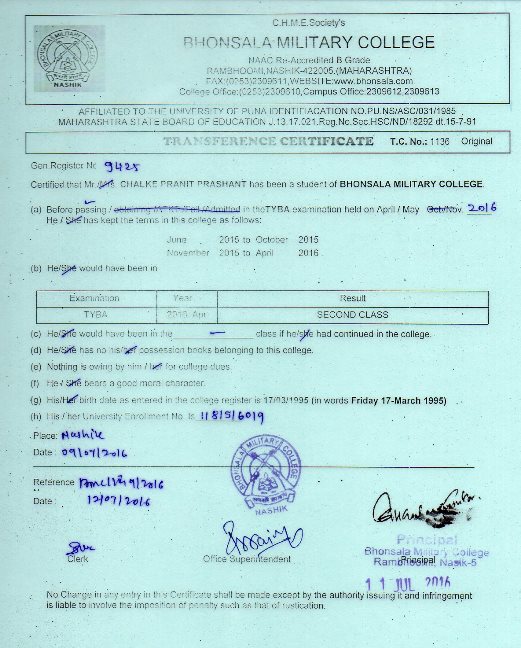 C.H.M.E.Society's
BHONSALA MILITARY COLLEGE
NAAC Re-Accredited B Grade
RAMBHOOMI,NASHIK-422005.(MAHARASHTRA)
FAX:(0253)2309611,WEBSITE:www.bhonsala.com
College Office:(0253)2309610,Campus Office:2309612,2309613
NASHIK
AFFILIATED TO THE UNIVERSITY OF PUNA IDENTIFIACATION NO.PU.NS/ASC/031/1985
MAHARASHTRA STATE BOARD OF EDUCATION J.13.17.021.Reg.No.Sec.HSC/ND/18292 dt.15-7-91
TRANSFERENCE CERTIFICATE T.C. No.: 1136 Original
Gen.Register No 9425
Certified that Mr./ CHALKE PRANIT PRASHANT has been a student of BHONSALA MILITARY COLLEGE.
(a) Before passing / Admitted in theTYBA examination held on April / May Oct/Nov. 2016
He / She has kept the terms in this college as follows:
June 2015 to October 2015
November 2015 to April 2016
(b) He/She would have been in
Examination Year Result
TYBA 2016 Apr SECOND CLASS
(c) He/She would have been in the — class if he/she had continued in the college.
(d) He/She has no his/her possession books belonging to this college.
(e) Nothing is owing by him / her for college dues.
(f) He / She bears a good moral character.
(g) His/Her birth date as entered in the college register is 17/03/1995 (in words Friday 17-March 1995)
(h) His / her University Enrollment No. Is. 118/5/6019
Place: Nashik
Date : 09/07/2016
BHONSALA MILITARY COLLEGE
NASHIK
Reference
Date : 12/07/2016
Clerk
Office Superintendent
Principal
Principal
Bhonsala Military College
Rambhoomi, Nasik-5
11 JUL 2016
No Change in any entry in this Certificate shall be made except by the authority issuing it and infringement
is liable to involve the imposition of penalty such as that of rustication.